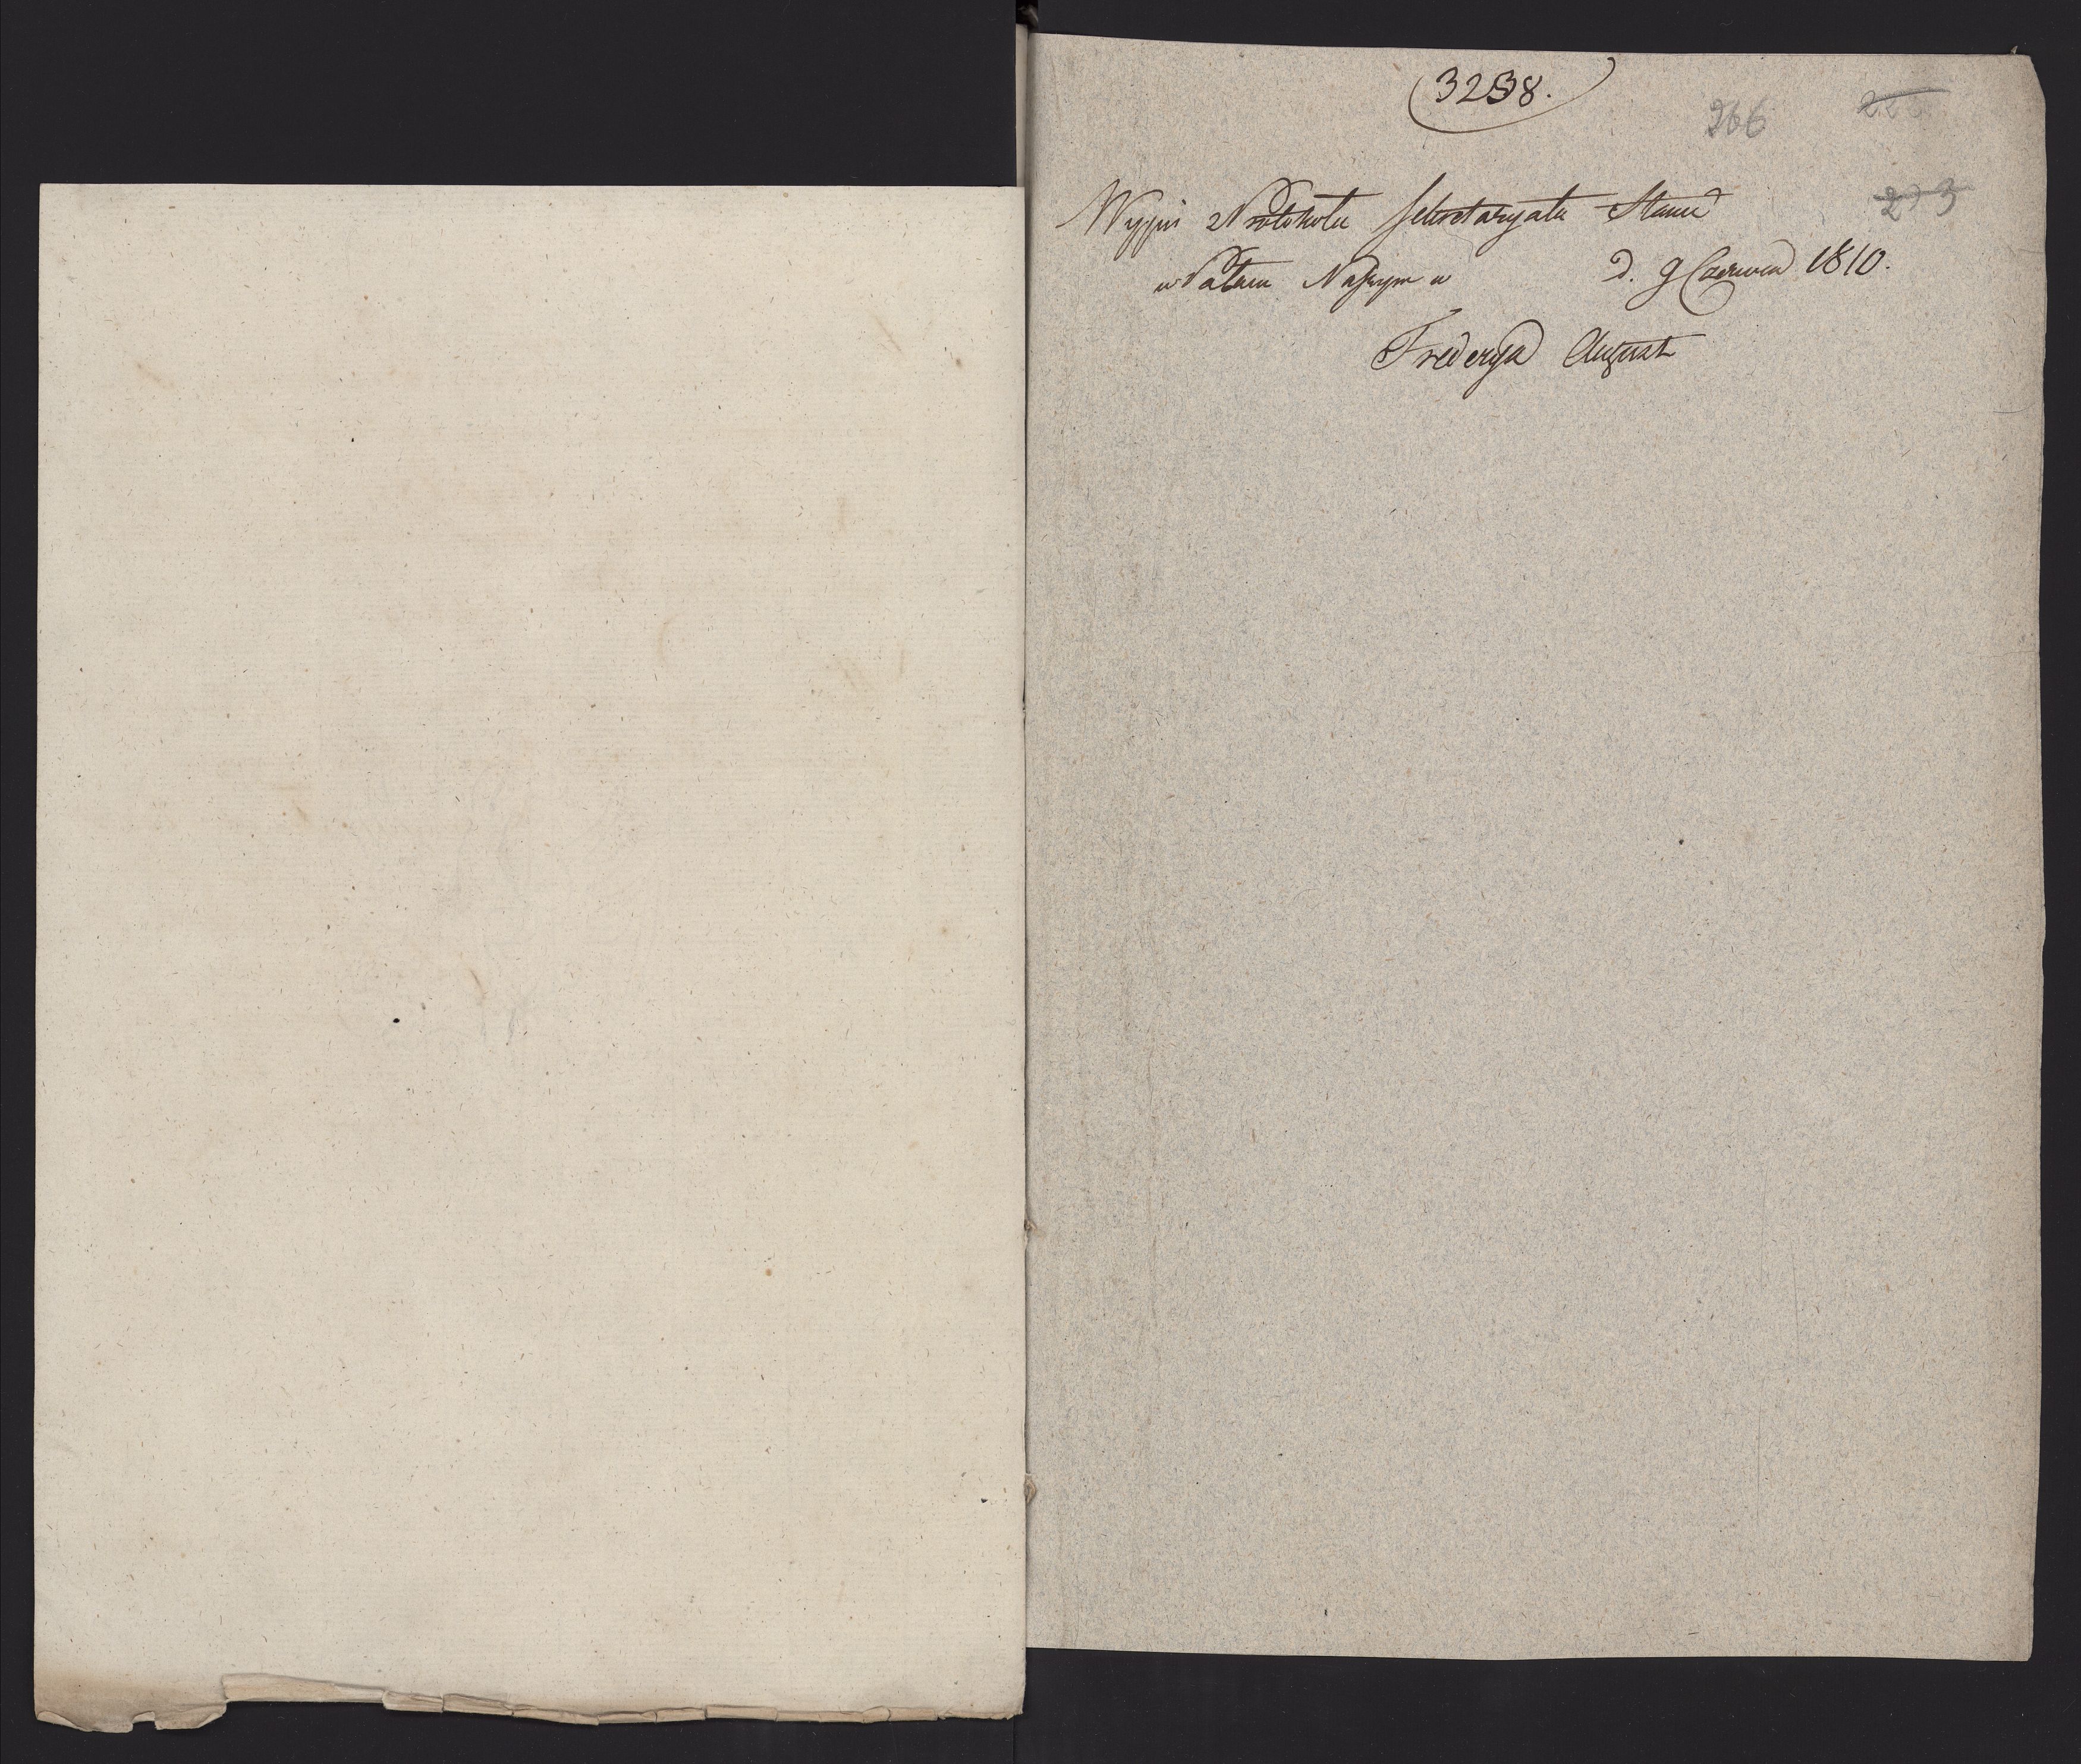 3238.
266
273
Wypis z Protokołu Sekretaryatu Stanu
w Pałacu Naszym w d. 9 Czerwca 1810.
Fryderyk August